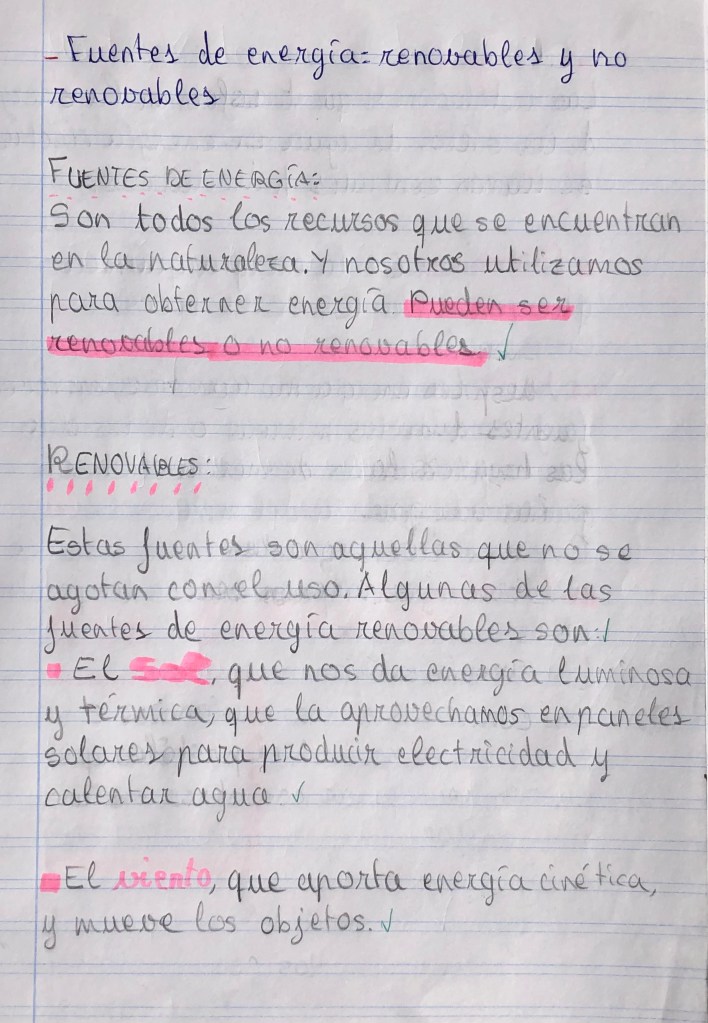 - Fuentes de energía: renovables y no
renovables
FUENTES DE ENERGÍA:
Son todos los recursos que se encuentran
en la naturaleza. Y nosotros utilizamos
para obterner energía. Pueden ser
renovables o no renovables.
RENOVABLES:
Estas fuentes son aquellas que no se
agotan con el uso. Algunas de las
fuentes de energía renovables son:
El Sol, que nos da energía luminosa
y térmica, que la aprovechamos en paneles
solares para producir electricidad y
calentar agua
El viento, que aporta energía cinética,
y mueve los objetos.